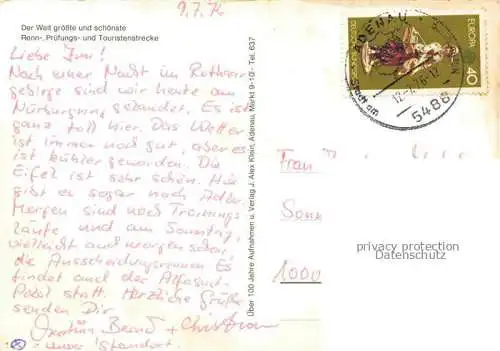 9.7.76
Der Welt größte und schönste
Renn-, Prüfungs- und Touristenstrecke
Liebe
Nach einer Nacht im Rothaar-
gebirge sind wir heute am
Nürburgring gelandet. Es ist
ganz toll hier. Das Wetter
ist immer noch gut, aber es
ist kühler geworden. Die
Eifel ist sehr schön. Hier
gibt es sogar noch Adler.
Morgen sind noch Trainings-
läufe und am Sonntag,
vielleicht auch morgen schon,
die Ausscheidungsrennen. Es
findet auch der Alfasud-
Pokal statt. Herzliche Grüße
senden Dir
Bernd + Christian
unser Standort.
Über 100 Jahre Aufnahmen u. Verlag J. Alex Klein, Adenau, Markt 9-10 · Tel. 637
ADENAU
5488
EUROPA
40
DEUTSCHE
Frau
Sonn
1000
privacy protection
Datenschutz